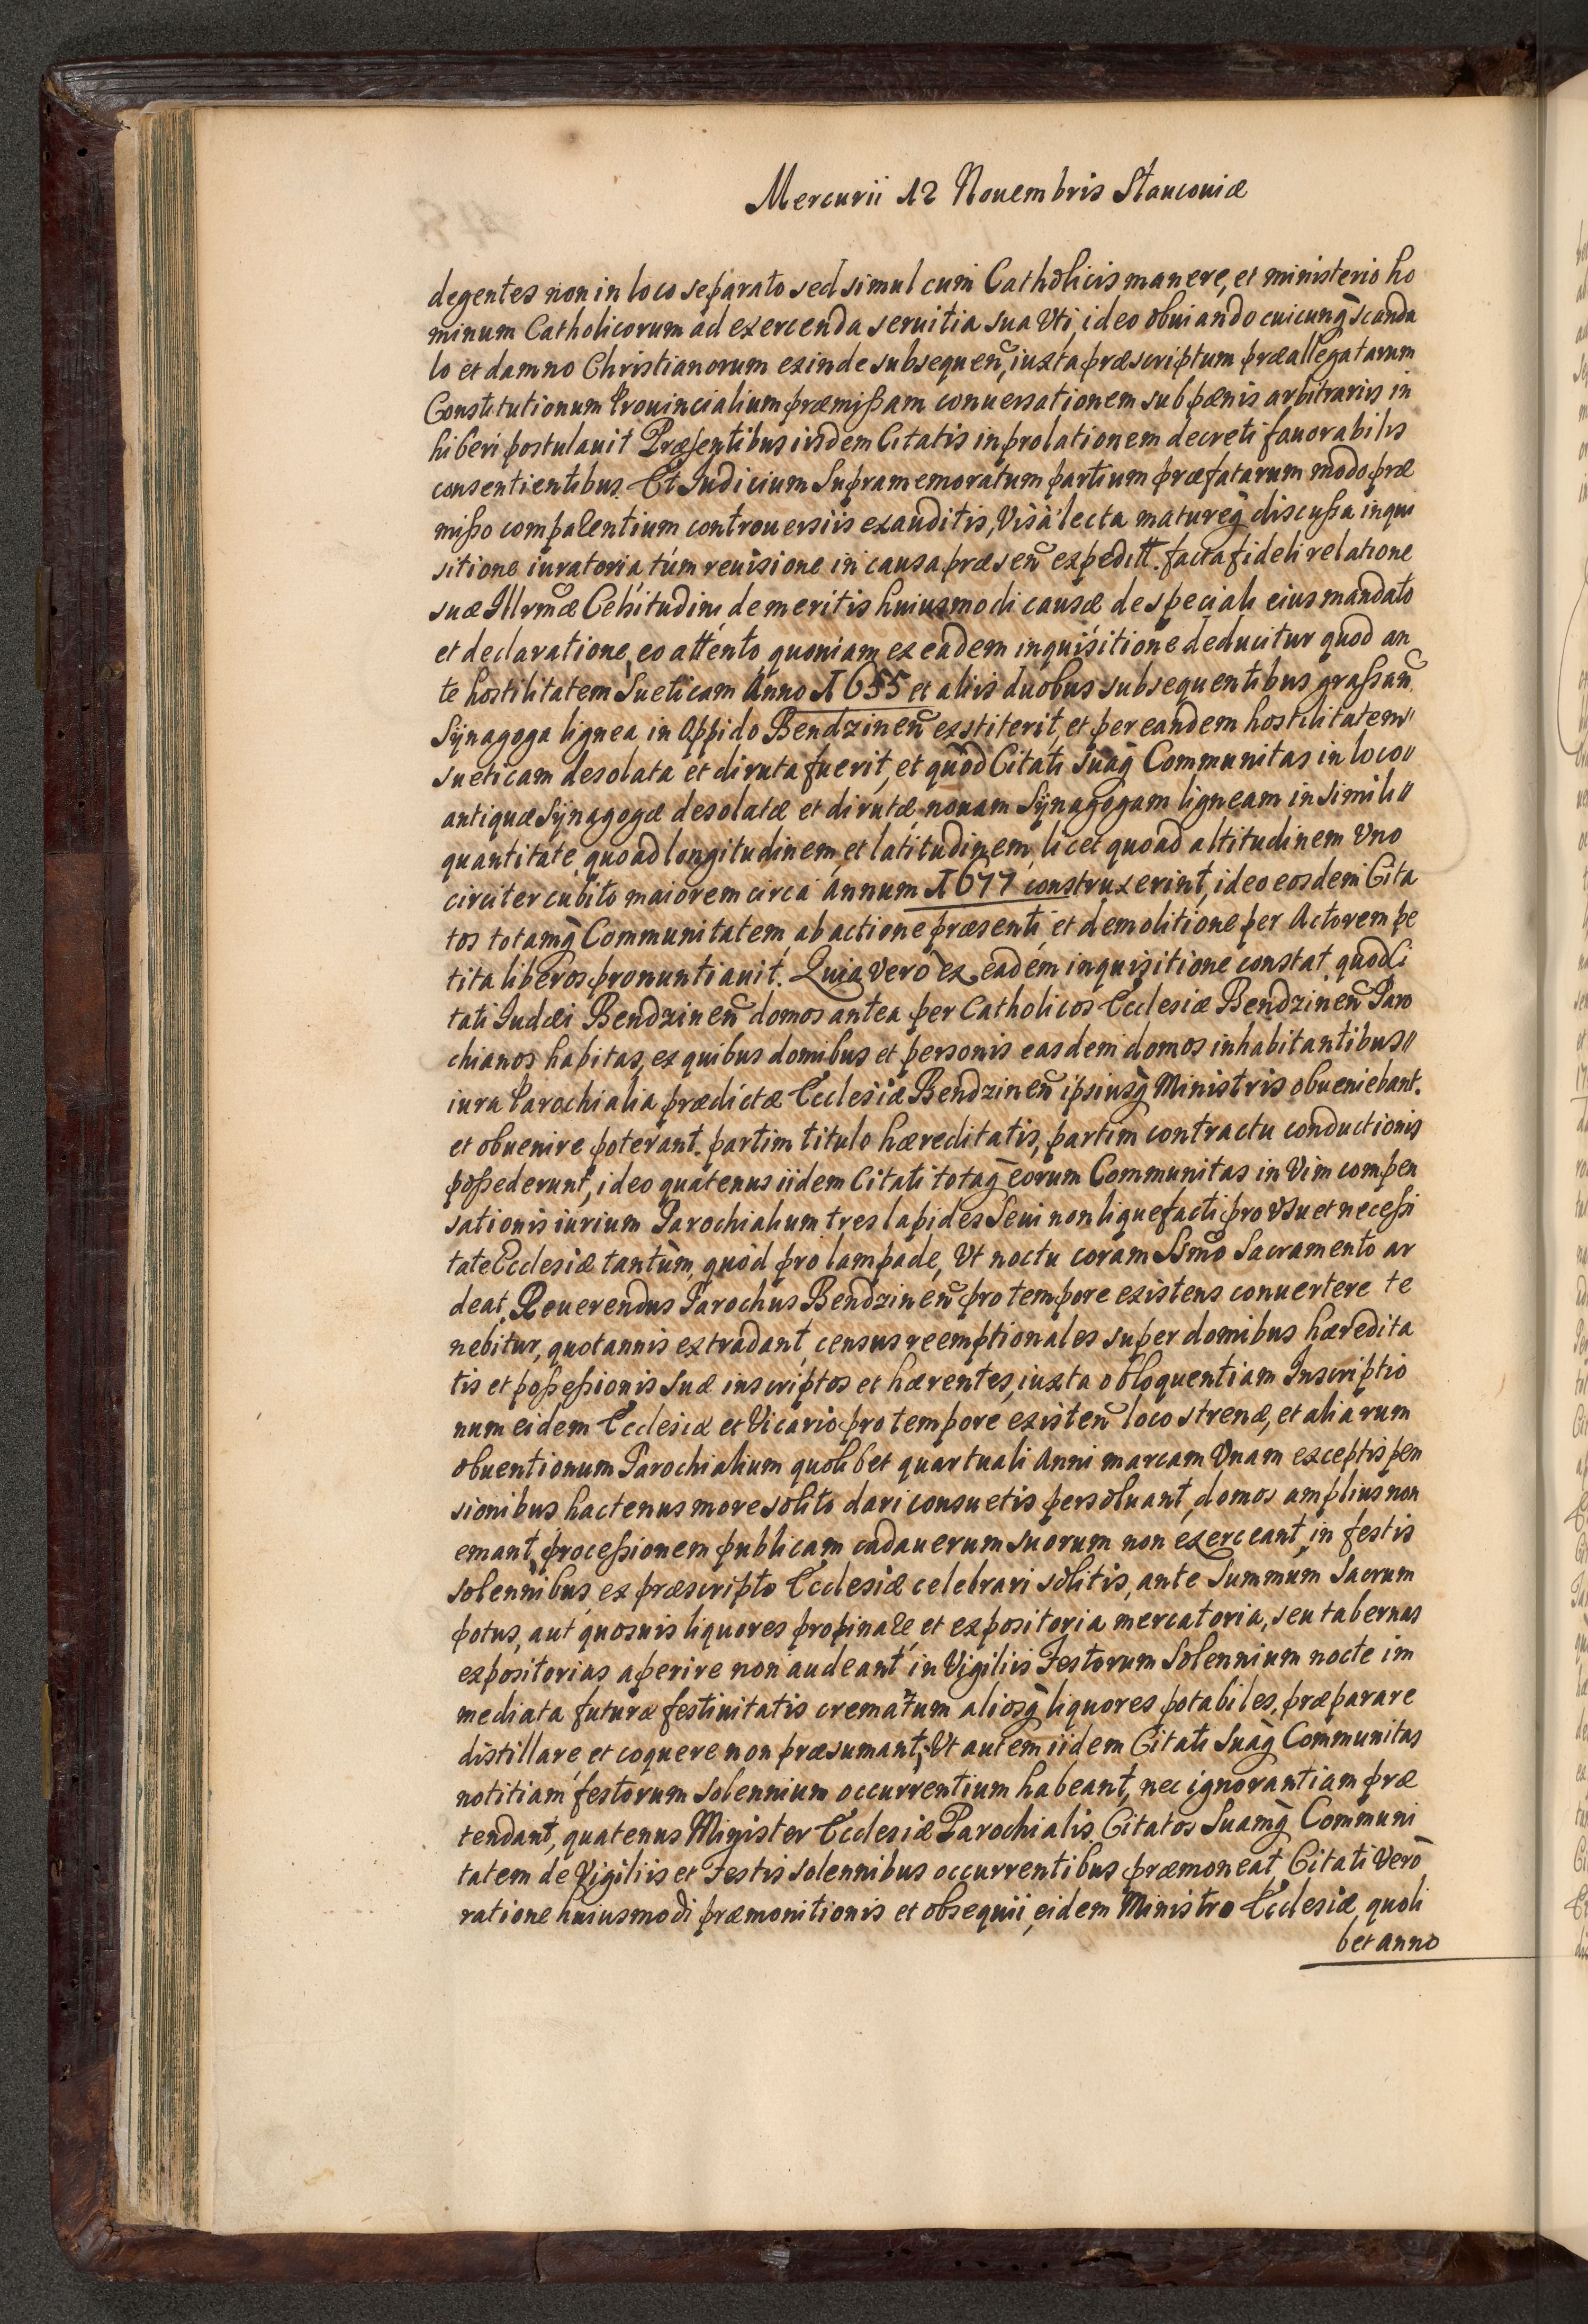 Mercurii 12 Nouembris Stauconiæ
degentes non in loco separato sed simul cum Catholicis manere, et ministerio ho
minum Catholicorum ad exercenda seruitia sua Vti, ideo obuiando cuicunq̃ scanda
lo et damno Christianorum exinde subsequeñ, iuxta præscriptum præallegatarum
Constitutionum Prouincialium præmißam conuersationem sub pænis arbitrariis in
hiberi postulauit Præsentibus iisdem Citatis in prolationem decreti fauorabilis
consentientibus. Et Iudicium Supramemoratum partium præfatarum modo præ
mißo comparentium controuersiis exauditis, Visa lecta matureq̃ discußa inqui
sitione iuratoria, tum reuisione in causa præseñ expeditt. facta fideli relatione
suæ Illr̃mæ Celsitudini de meritis huiusmodi causæ de speciali eius mandato
et declaratione, eo attento, quoniam ex eadem inquisitione deducitur quod an
te hostilitatem Sueticam Anno 1655 et aliis duobus subsequentibus graßañ
Synagoga lignea in Oppido Bendzineñ exstiterit, et per eandem hostilitatem
sueticam desolata et diruta fuerit, et quod Citati Suaq̃ Communitas in loco
antiquæ Synagogæ desolatæ et dirutæ, nouam Synagogam ligneam in simili
quantitate quoad longitudinem, et latitudinem, licet quoad altitudinem Vno
circiter cubito maiorem circa Annum 1677 construxerint, ideo eosdem Cita
tos totamq̃ Communitatem, ab actione præsenti et demolitione per Actorem pe
tita liberos pronuntiauit. Quia vero ex eadem inquisitione constat quod Ci
tati Iudæi Bendzineñ domos antea per Catholicos Ecclesiæ Bendzineñ Paro
chianos habitas, ex quibus domibus et personis easdem domos inhabitantibus
iura Parochialia prædictæ Ecclesiæ Bendzineñ ipsiusq̃ Ministris obueniebant.
et obuenire poterant. partim titulo hæreditatis, partim contractu conductionis
poßederunt, ideo quatenus iidem Citati totaq̃ eorum Communitas in Vim compen
sationis iurium Parochialium tres lapides Seui non liquefacti pro Vsu et neceßi
tate Ecclesiæ tantum, quod pro lampade, Vt noctu coram Ss̃mo Sacramento ar
deat, Reuerendus Parochus Bendzineñ pro tempore existens conuertere te
nebitur, quotannis extradant, census reemptionales super domibus hæredita
tis et poßeßionis suæ inscriptos et hærentes, iuxta obloquentiam Inscriptio
num eidem Ecclesiæ et Vicario pro tempore existeñ loco strenæ, et aliarum
obuentionum Parochialium quolibet quartuali Anni marcam Vnam exceptis pen
sionibus hactenus more solito dari consuetis persoluant, domos amplius non
emant, proceßionem publicam cadauerum suorum non exerceant, in festis
solennibus, ex præscripto Ecclesiæ celebrari solitis, ante Summum Sacrum
potus, aut quosuis liquores propinare, et expositoria mercatoria, seu tabernas
expositorias aperire non audeant in Vigiliis Festorum Solennium nocte im
mediata futuræ festiuitatis crematum aliosq̃ liquores potabiles, præparare
distillare, et coquere non præsumant, Vt autem iidem Citati Suaq̃ Communitas
notitiam festorum solennium occurrentium habeant, nec ignorantiam præ
tendant, quatenus Minister Ecclesiæ Parochialis Citatos Suamq̃ Communi
tatem de Vigiliis et Festis solennibus occurrentibus præmoneat Citati Vero
ratione huiusmodi præmonitionis et obsequii, eidem Ministro Ecclesiæ, quoli
bet anno